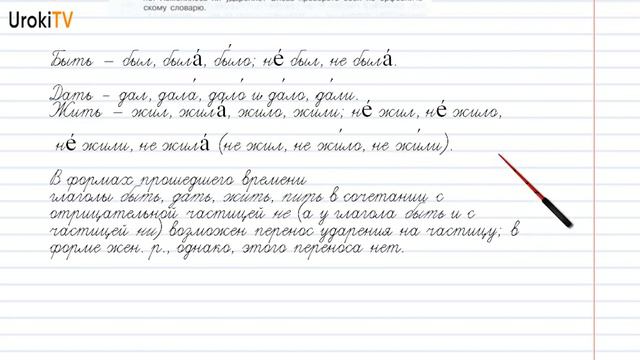 UrokiTV
скому словарю.
Быть – был, была́, бы́ло; не́ был, не была́.
Дать – дал, дала́, дало́ и да́ло, да́ли.
Жить – жил, жила́, жило, жили; не́ жил, не́ жило,
не́ жили, не жила́ (не жил, не жи́ло, не жи́ли).
В формах прошедшего времени
глаголы быть, дать, жить, пить в сочетании с
отрицательной частицей не (а у глагола быть и с
частицей ни) возможен перенос ударения на частицу; в
форме жен. р., однако, этого переноса нет.